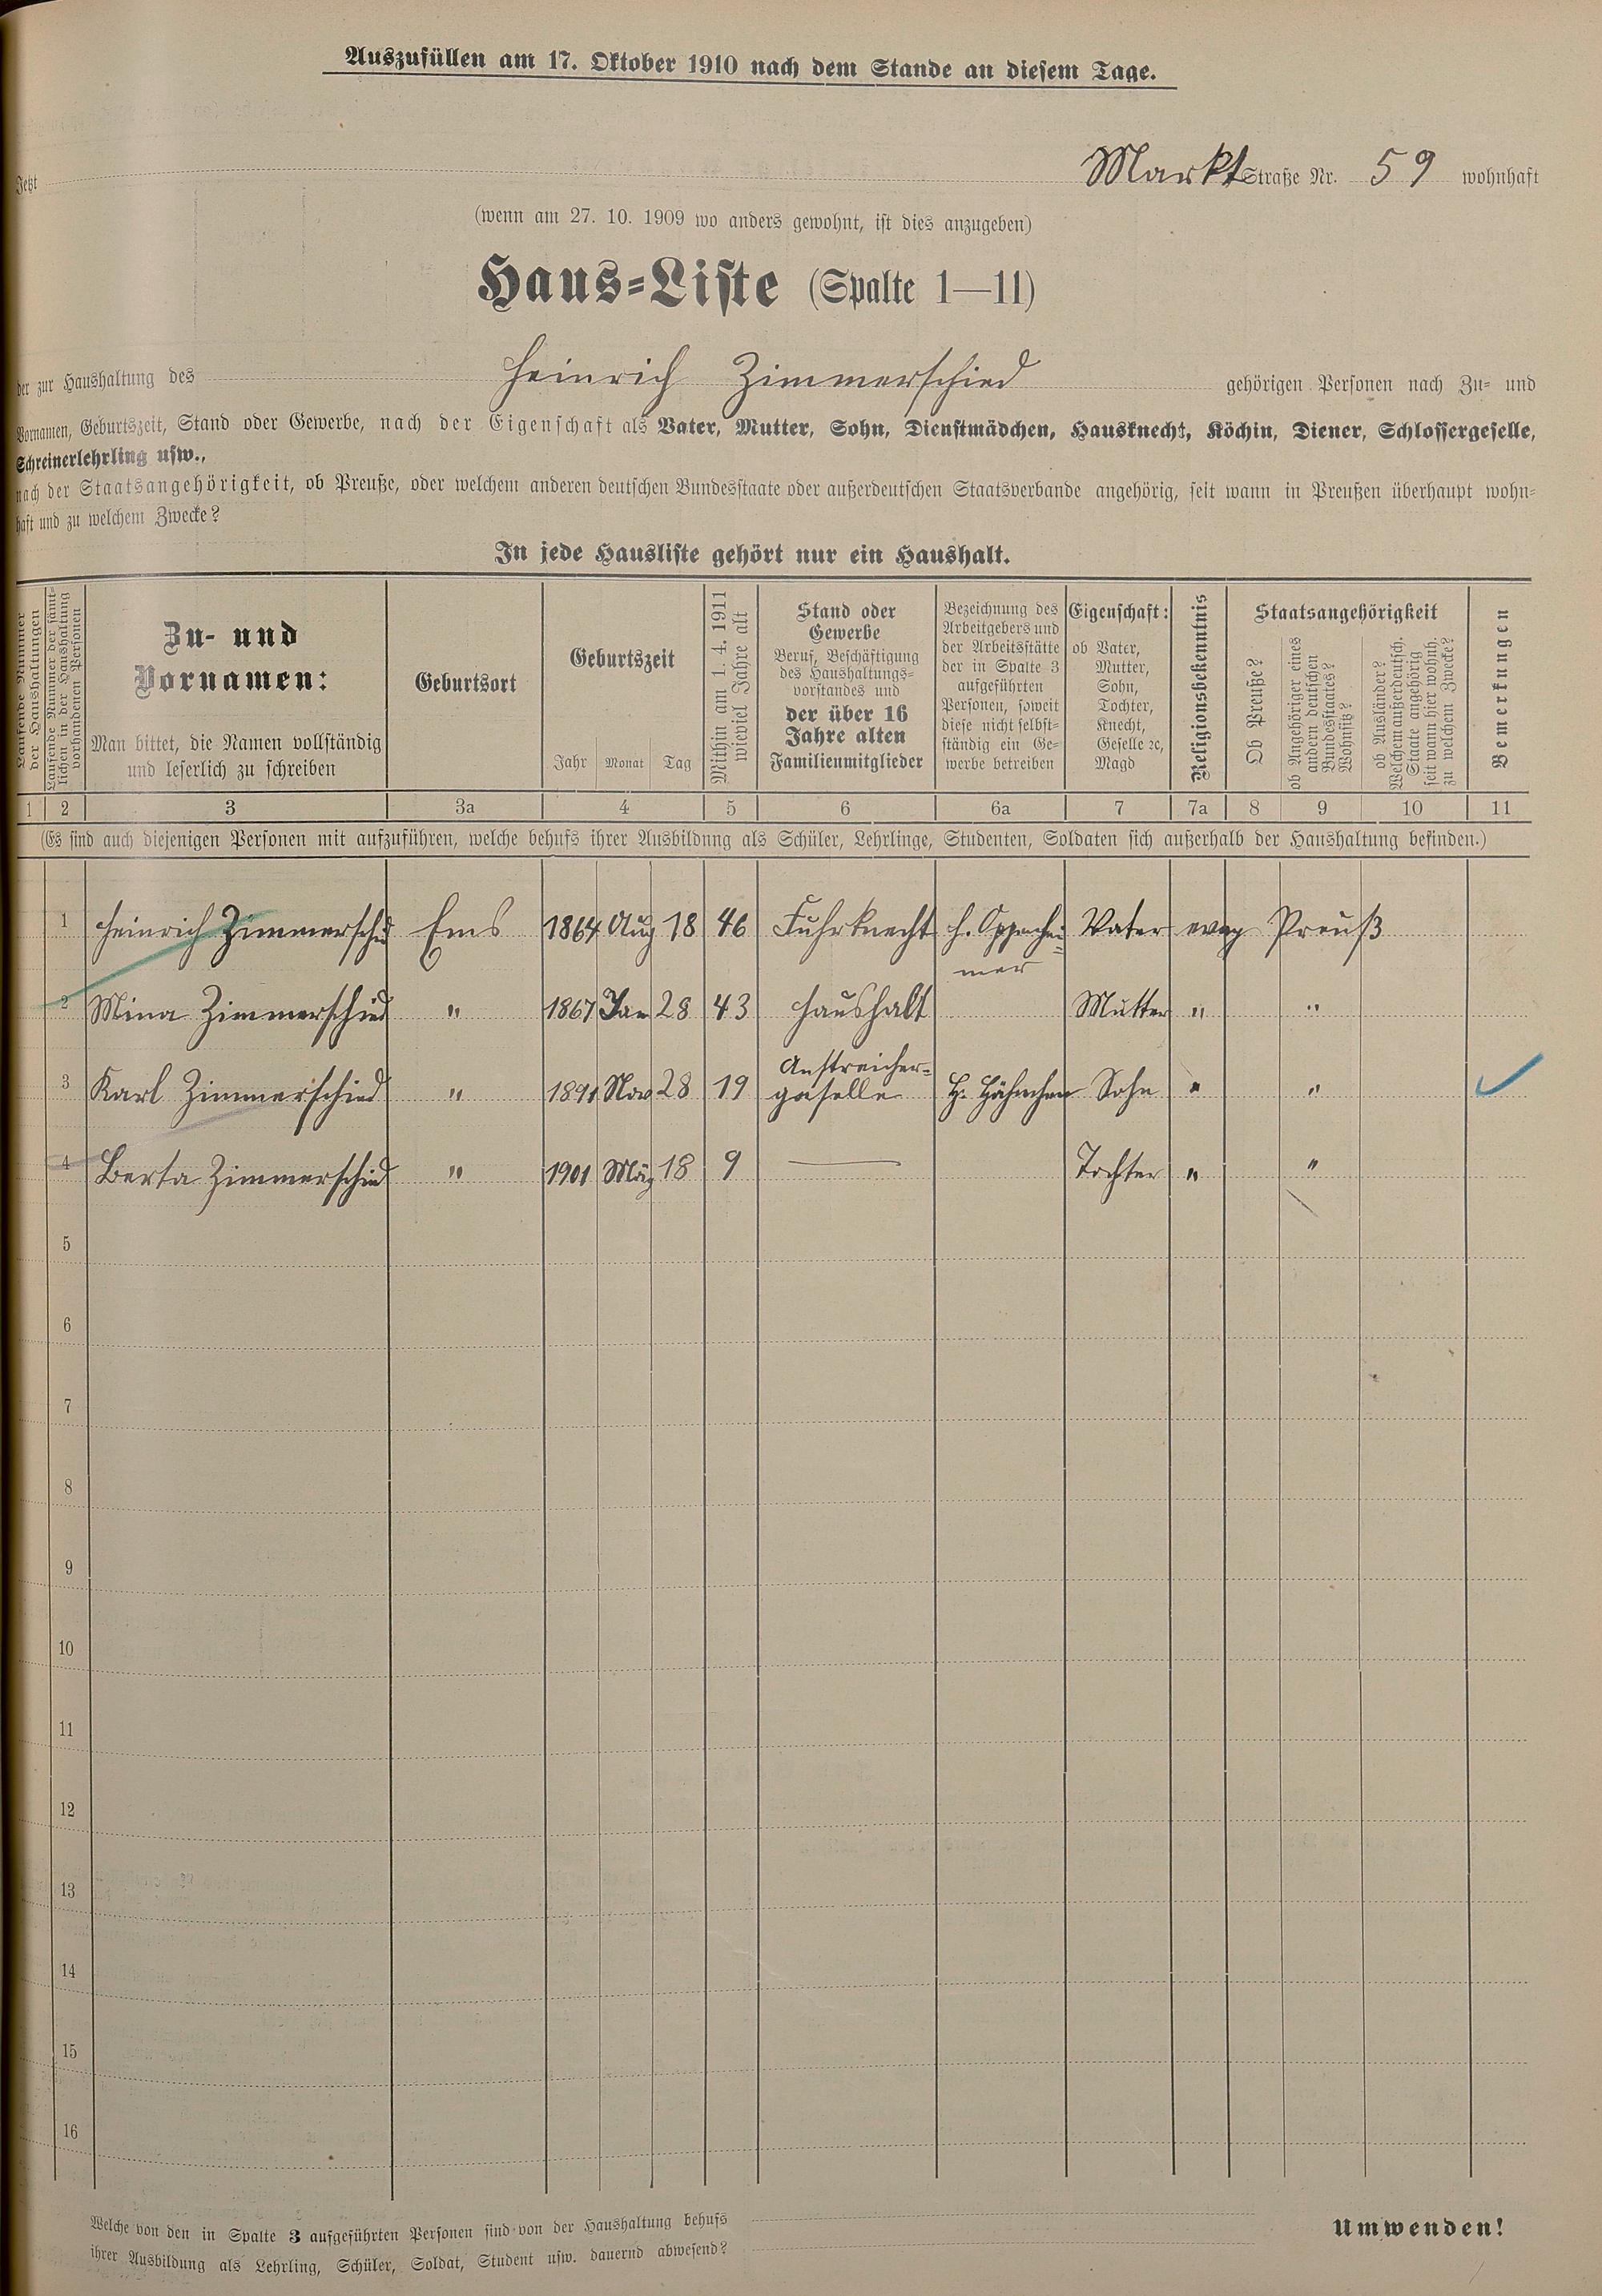 Auszufüllen am 17. Oktober 1910 nach dem Stande an diesem Tage.
Jetzt Markt Straße Nr. 59 wohnhaft
(wenn am 27. 10. 1909 wo anders gewohnt, ist dies anzugeben)
Haus-Liste (Spalte 1—11)
der zur Haushaltung des Heinrich Zimmerschied gehörigen Personen nach Zu- und
Vornamen, Geburtszeit, Stand oder Gewerbe, nach der Eigenschaft als Vater, Mutter, Sohn, Dienstmädchen, Hausknecht, Köchin, Diener, Schlossergeselle,
Schreinerlehrling usw.,
nach der Staatsangehörigkeit, ob Preuße, oder welchem anderen deutschen Bundesstaate oder außerdeutschen Staatsverbande angehörig, seit wann in Preußen überhaupt wohn-
haft und zu welchem Zwecke?
In jede Hausliste gehört nur ein Haushalt.
Laufende Nummer
der Haushaltungen
Laufende Nummer der sämt-
lichen in der Haushaltung
vorhandenen Personen
Zu- und
Vornamen:
Man bittet, die Namen vollständig
und leserlich zu schreiben
Geburtsort
Geburtszeit
Jahr Monat Tag
Mithin am 1. 4. 1911
wieviel Jahre alt
Stand oder
Gewerbe
Beruf, Beschäftigung
des Haushaltungs-
vorstandes und
der über 16
Jahre alten
Familienmitglieder
Bezeichnung des
Arbeitgebers und
der Arbeitsstätte
der in Spalte 3
aufgeführten
Personen, soweit
diese nicht selbst-
ständig ein Ge-
werbe betreiben
Eigenschaft:
ob Vater,
Mutter,
Sohn,
Tochter,
Knecht,
Geselle ꝛc,
Magd
Religionsbekenntnis
Staatsangehörigkeit
Ob Preuße?
ob Angehöriger eines
andern deutschen
Bundesstaates?
Wohnsitz?
ob Ausländer?
Welchem außerdeutsch.
Staate angehörig
seit wann hier wohnh.
zu welchem Zwecke?
Bemerkungen
1 2 3 3a 4 5 6 6a 7 7a 8 9 10 11
(Es sind auch diejenigen Personen mit aufzuführen, welche behufs ihrer Ausbildung als Schüler, Lehrlinge, Studenten, Soldaten sich außerhalb der Haushaltung befinden.)
1 Heinrich Zimmerschid Ems 1864 Aug 18 46 Fuhrknecht H. Oppenhei= Vater evag Preuß
mer
2 Mina Zimmerschied " 1867 Jan 28 43 Haushalt Mutter " "
Anstreicher=
3 Karl Zimmerschied " 1891 Nov 28 19 geselle H. Hähnchen Sohn " "
4 Berta Zimmerschied " 1901 Mäz 18 9 — Tochter " "
5
6
7
8
9
10
11
12
13
14
15
16
Welche von den in Spalte 3 aufgeführten Personen sind von der Haushaltung behufs
ihrer Ausbildung als Lehrling, Schüler, Soldat, Student usw. dauernd abwesend?
Umwenden!